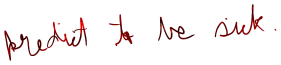 predict to be sick.